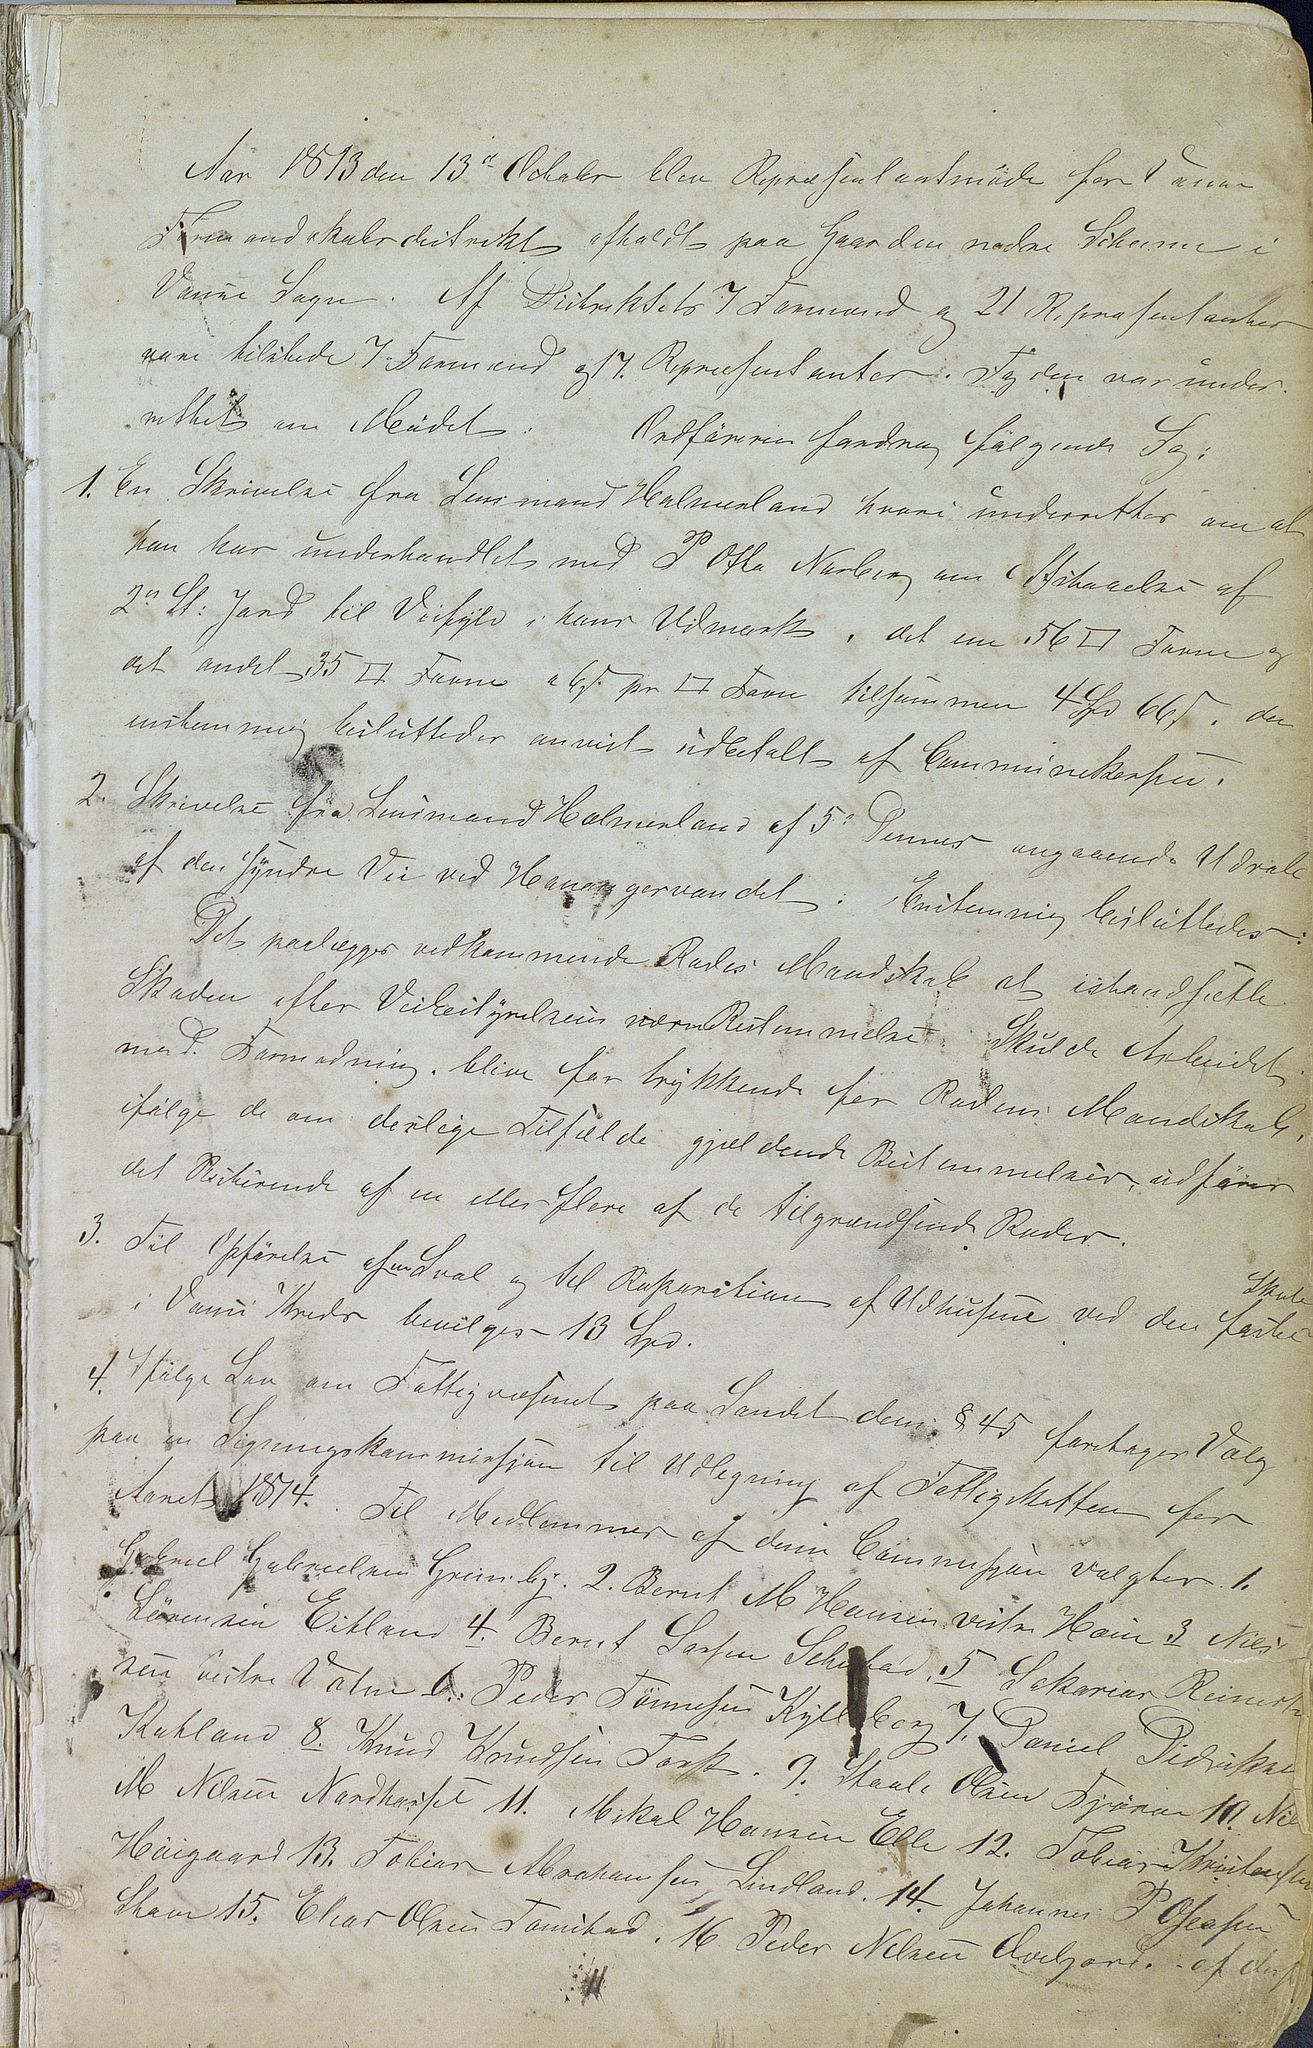 Aar 1873 den 13d October blev Repræsentantmöde for Vanse
Formandskabsdistrikt afholdt paa Gaarden nedre Skeime i
Vanse Sogn. Af Distriktets 7 Formænd og 21 Repræsentanter
vare tilstede 7 Formænd og 17. Repræsentanter. Fogden var under-
rettet om Mödet. Ordföreren foredrog fölgende Sag:
1. En Skrivelse fra Lensmand Holmerland hvori underrettes om at
han har underhandlet med P Otto Norberg om Afstaaelse af
2de St: Jord til Veifyld i hans Udmark, det ene 56 □ Favne og
det andet 35 □ Favne a 6s. pr □ Favn tilsammen 4 Spd 66s. der
enstemmig besluttedes anvist udbetalt af Communekassen.
2. Skrivelse fra Lensmand Holmerland af 5te Dennes angaaende Udrab
af den söndre Vei ved Hanangervandet: Enstemmig besluttedes:
Det paalægges vedkommende Rodes Mandskab at istandsætte
Skaden efter Veibestyrelsens nærm Bestemmelse. Skulde Arbeidet
mod Formodning, blive for trykkende for Rodens Mandskab,
ifölge de om deslige Tilfælde gjældende Bestemmelser, udföres
det Resterende af en eller flere af de tilgrændsende Roder.
3. Til Opförelse af en Sval og til Reparation af Udhusene ved den faste Skole
i Vanse Kreds bevilges 13 Spd.
4. Ifölge Lov om Fattigvæsenet paa Landet dens § 45 foretages Valg
paa en Ligningskommission til Udlegning af Fattigskatten for
Aaret 1874. Til Medlemmer af denne Commission valgtes 1.
Gabriel Gabrielsen Grimsby. 2. Bernt M Hansen vestre Hæn 3 Niels
Sörensen Eitland 4. Bernt Larsen 5 Sakarias Reinert-
sen vestre Vatne 6. Peder Tönnesen Kjellberg 7. Daniel Didriksen
Kohland 8. Knud Knudsen Torp. 9. Staale Olsen 10. Niels
M Nilsen Nordhassel 11. Mikal Hansen Elle 12. Tobias Kristensen
Höigaard 13. Tobias Abrahamsen Lindland. 14. Johannes P
15. Elias Olsen Tomstad. 16 Peder Nilsen Ovelgard. af